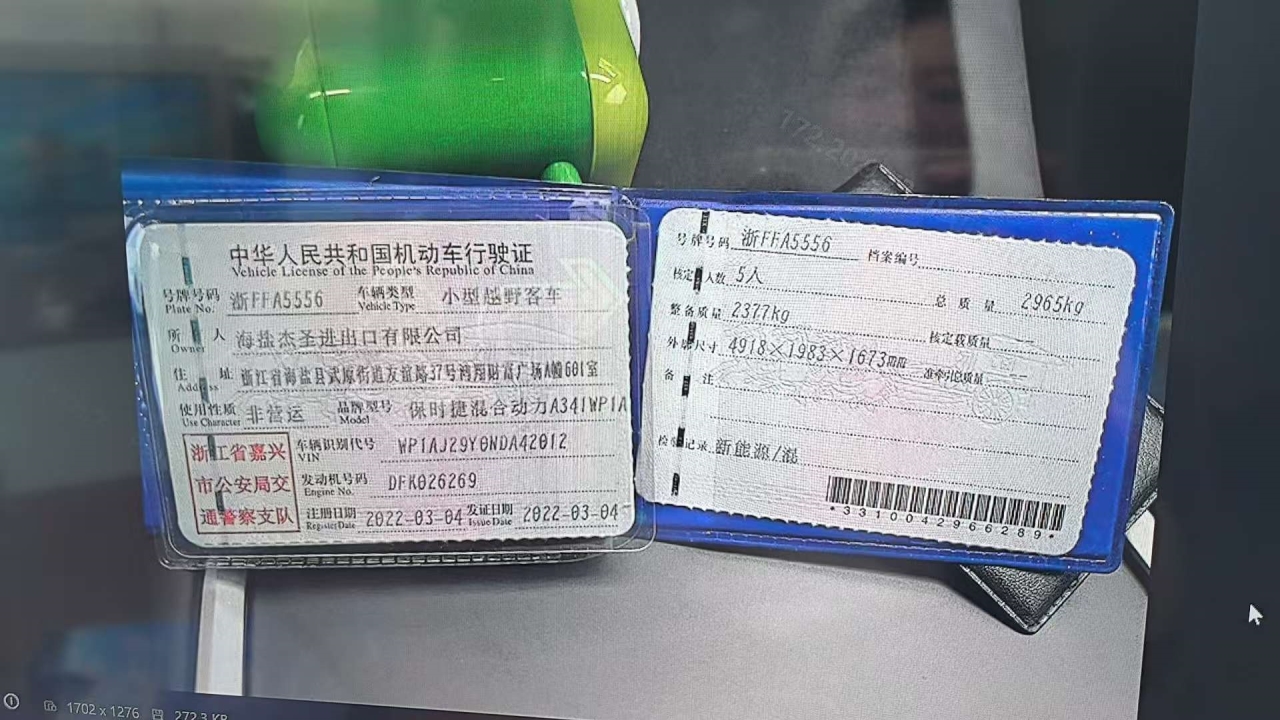 中华人民共和国机动车行驶证
Vehicle License of the People's Republic of China
号牌号码 浙FFA5556 车辆类型 小型越野客车
Plate No. Vehicle Type
所 人 海盐杰圣进出口有限公司
Owner
住 址 浙江省海盐县武原街道友谊路37号鸿翔财富广场A幢601室
Address
使用性质 非营运 品牌型号 保时捷混合动力A341WP1A
Use Character Model
浙江省嘉兴
市公安局交
通警察支队
车辆识别代号 WP1AJ29Y0NDA42012
VIN
发动机号码 DFK026269
Engine No.
注册日期 2022-03-04 发证日期 2022-03-04
Register Date Issue Date
号牌号码 浙FFA5556 档案编号
核定 人数 5人 总 质 量 2965kg
整备质量 2377kg 核定载质量 --
外廓尺寸 4918×1983×1673 准牵引总质量 --
备 注
检 记录 新能源/混
*3310042966289*
1702 x 1276 272.3 KB